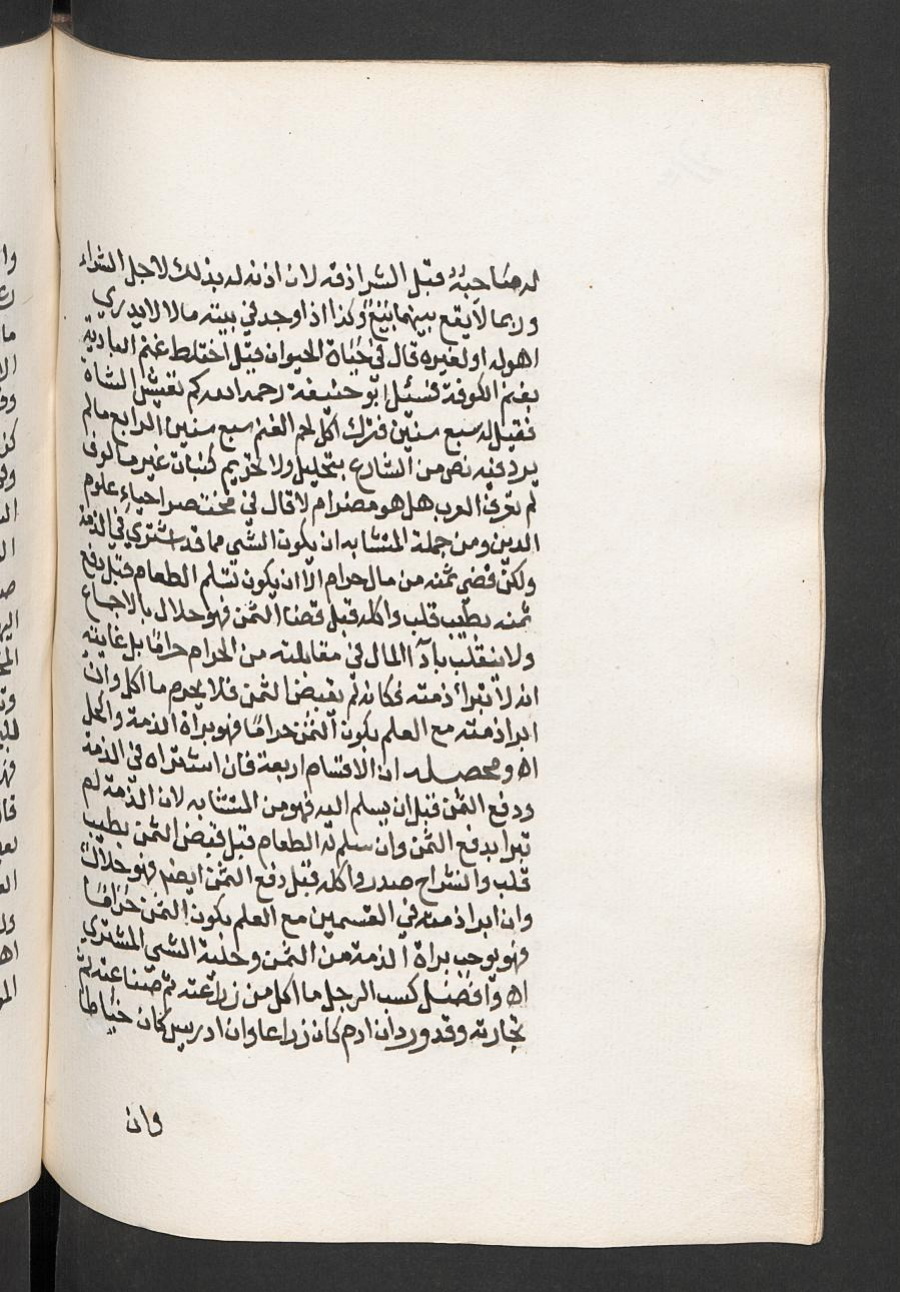 له صاحبه قبل الشراذقه لان اذنه له بذلك لاجل الشراء
وربما لا يقع بينهما بيع وكذا اذا وجد في بيته مالا لا يدري
اهو له او لغيره قال في حياة الحيوان قيل اختلط غنم البادية
بغنم الكوفة فسئل ابو حنيفة رحمه الله كم تعيش الشاة
فقيل له سبع سنين فترك اكل لحم الغنم سبع سنين الرابع ما لم
يرد فيه نص من الشارع بتحليل ولا تحريم كنبات غير مالوف
لم تعرف العرب هل هو مضر ام لا قال في مختصر احياء علوم
الدين ومن جملة المتشابه ان يكون الشي مما قد اشتري في الذمة
ولكن قضي ثمنه من مال حرام الا ان يكون تسلم الطعام قبل دفع
ثمنه بطيب قلب واكله قبل قضا الثمن فهو حلال بالاجماع
ولا ينقلب بادآ المال في مقابلته من الحرام حراما بل غايته
انه لا تبرا ذمته فكانه لم يقبض الثمن فلا يحرم ما اكل وان
ابرا ذمته مع العلم بكون الثمن حراما فهو براة الذمة والحل
اه ومحصله ان الاقسام اربعة فان اشتراه في الذمة
ودفع الثمن قبل ان يسلم اليه فهو من المتشابه لان الذمة لم
تبرا بدفع الثمن وان سلم له الطعام قبل قبض الثمن بطيب
قلب وانشراح صدر واكله قبل دفع الثمن ايضم فهو حلال
وان ابرا ذمته في القسمين مع العلم بكون الثمن حراما
فهو يوجب براة الذمة من الثمن وحلية الشي المشتري
اه وافضل كسب الرجل ما اكل من زراعته ثم صناعته ثم
تجارته وقد ورد ان ادم كان زراعا وان ادريس كان خياطا
وان